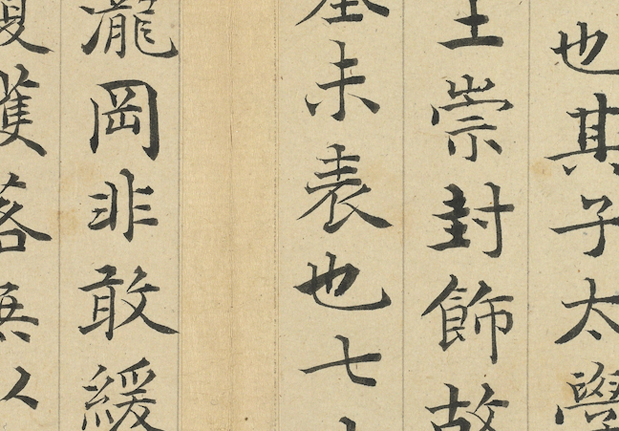 也其子太學
崇封飾故
未表也七
瀧岡非敢緩
落無